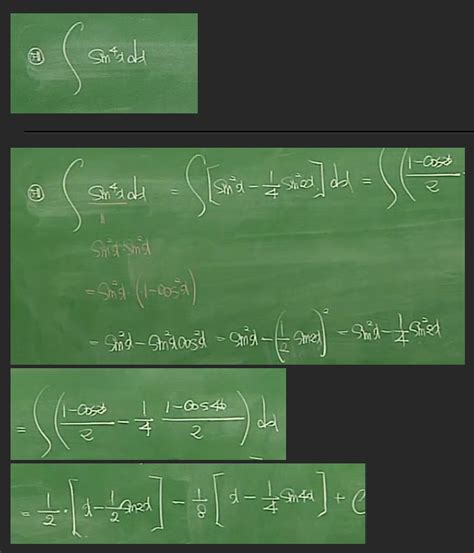 ⓗ ∫ sin⁴x dx
ⓗ ∫ sin⁴x dx = ∫ [sin²x − 1/4 sin²2x] dx = ∫ ( (1−cos2x)/2
sin²x·sin²x
= sin²x·(1−cos²x)
= sin²x − sin²x cos²x = sin²x − (1/2 sin2x)² = sin²x − 1/4 sin²2x
= ∫ ( (1−cos2x)/2 − 1/4 (1−cos4x)/2 ) dx
= 1/2·[x − 1/2 sin2x] − 1/8 [x − 1/4 sin4x] + C